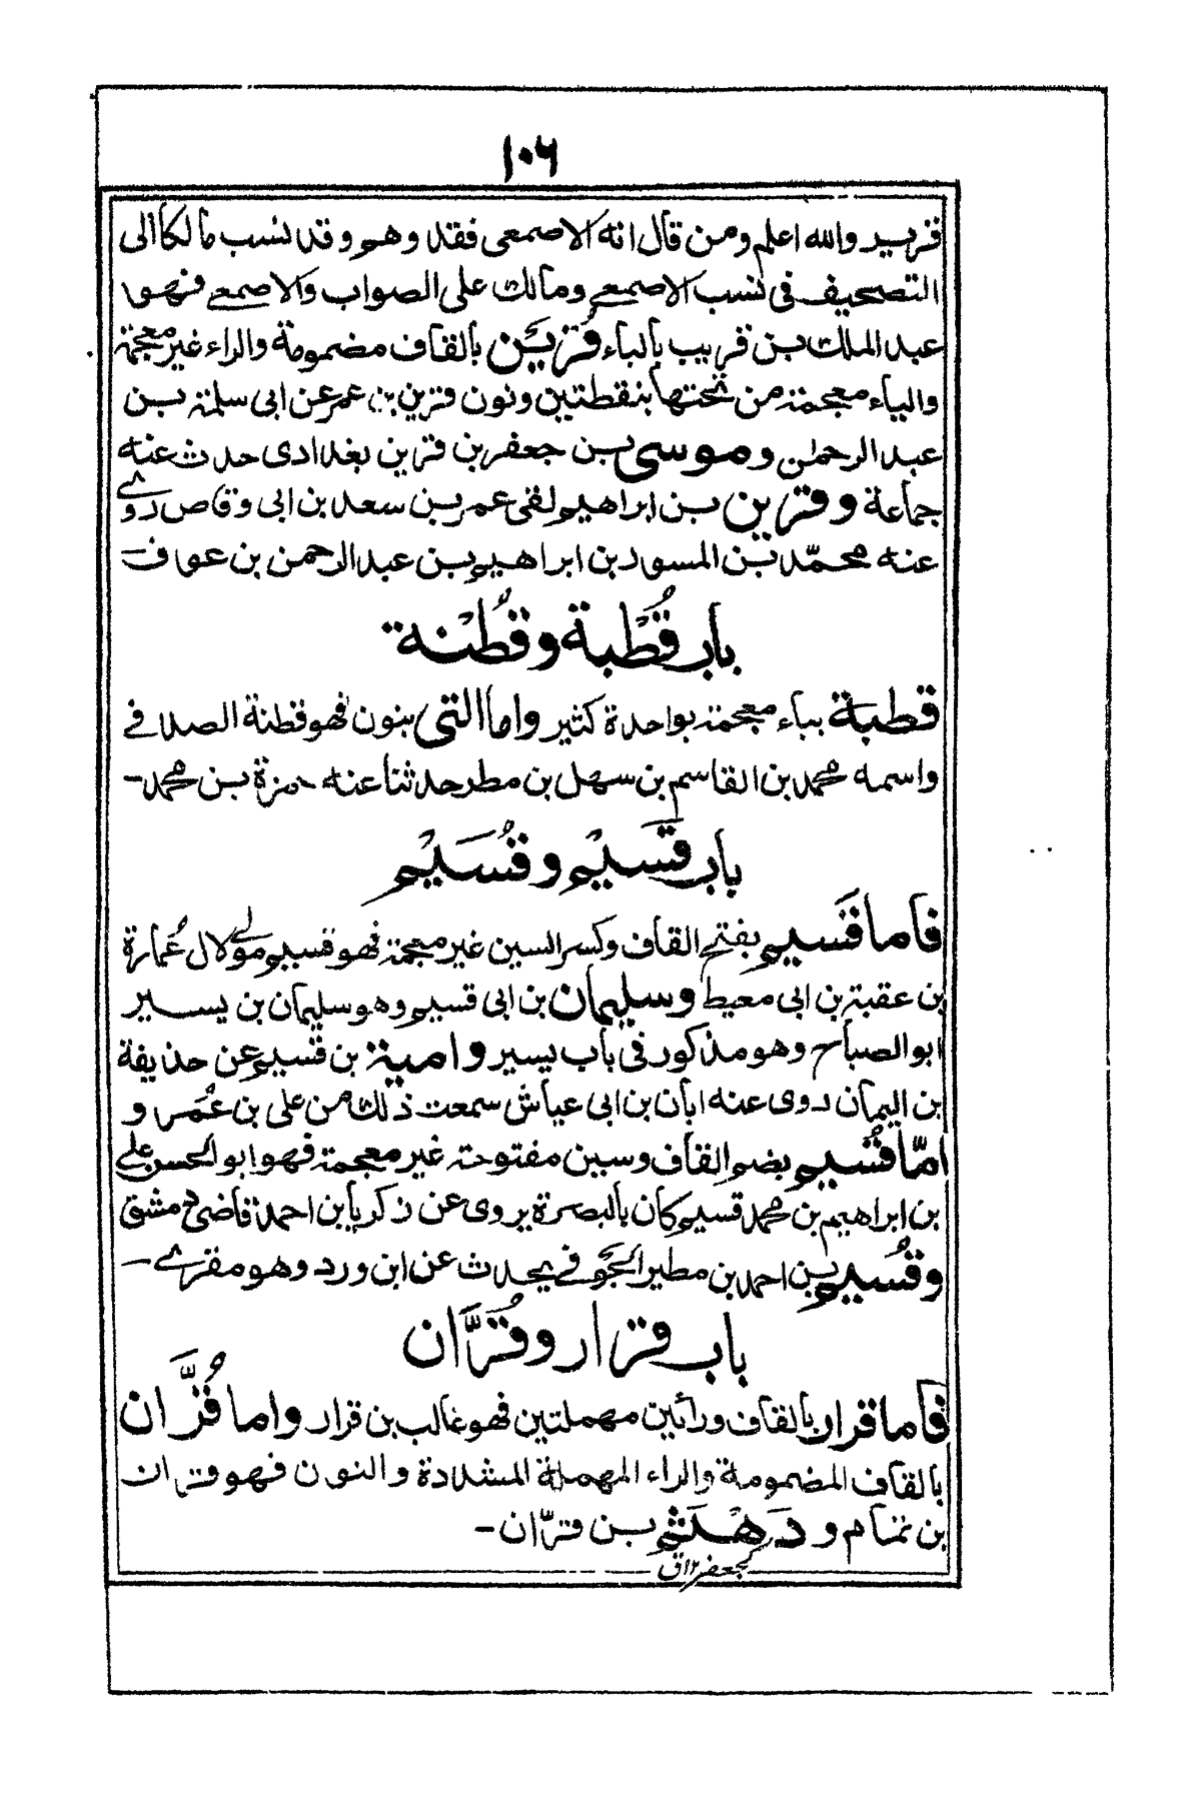 ١٠٦
قريب والله اعلم ومن قال انه الاصمعى فقد وهم وقد نسب مالكا الى
التصحيف فى نسب الاصمعي ومالك على الصواب والاصمعي فهو
عبد الملك بن قريب بالباء قُرَيْن بالقاف مضمومة والراء غير معجمة
والياء معجمة من تحتها بنقطتين ونون قرين بن عمر عن ابى سلمة بن
عبد الرحمان وموسى بن جعفر بن قرين بغدادى حدث عنه
جماعة وقرين بن ابراهيم لقى عمر بن سعد بن ابى وقاص روى
عنه محمّد بن المسور بن ابراهيم بن عبد الرحمن بن عوف
باب قُطْبة وقُطْنة
قطبة بباء معجمة بواحدة كثير واما التى بنون فهو قطنة الصدفي
واسمه محمد بن القاسم بن سهل بن مطر حدثنا عنه حمزة بن محمد-
باب قَسِيْم وقُسَيْم
فاما قَسيم بفتح القاف وكسر السين غير معجمة فهو قسيم مولى لال عُمارة
بن عقبة بن ابى معيط وسليمان بن ابى قسيم وهو سليمان بن يسير
ابو الصباح وهو مذكور فى باب يسير وامية بن قسيم عن حذيفة
بن اليمان روى عنه ابان بن ابى عياش سمعت ذلك من على بن عُمر و
امّا قُسَيم بضم القاف وسين مفتوحة غير معجمة فهو ابو الحسن علي
بن ابراهيم بن محمد قسيم كان بالبصرة يروى عن زكريا بن احمد قاضى دمشق
وقُسيم بن احمد بن مطير الجوفي يحدث عن ابن ورد وهو مقري-
باب قرار وقُرَّان
فاما قرار بالقاف ورائين مهملتين فهو غالب بن قرار واما قُرَّان
بالقاف المضمومة والراء المهملة المشددة والنون فهو قران
بن تمام ودَهْثَم بن قرّان-